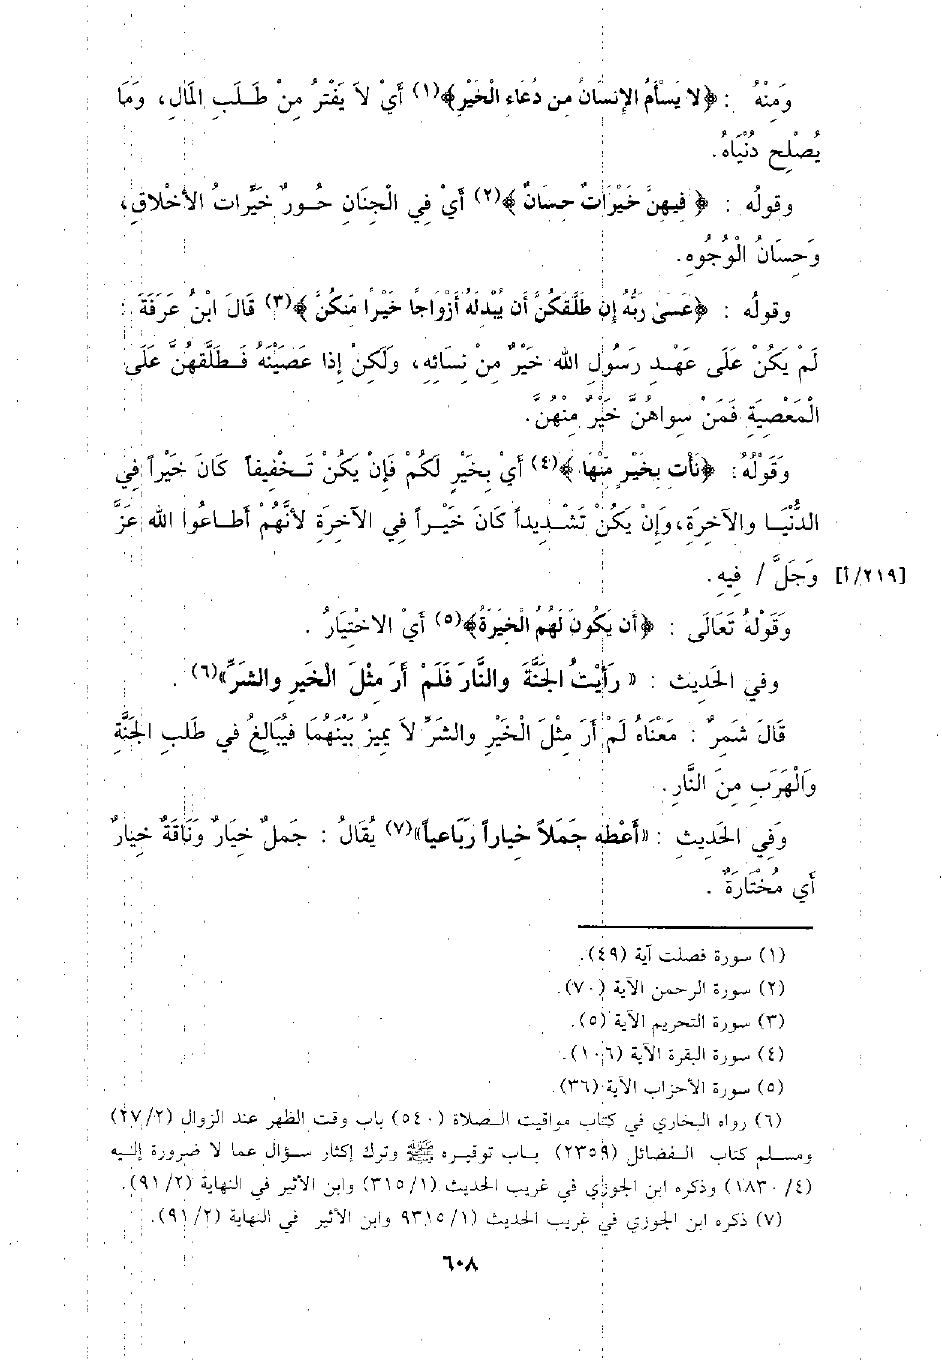 وَمِنْهُ : ﴿لا يَسْأَمُ الإنسَانُ من دُعَاءِ الْخَيْرِ﴾(١) أَيْ لاَ يَفْتُرُ مِنْ طَلَبِ المَالِ، وَمَا
يُصْلِح دُنْيَاهُ.
وقولُه : ﴿ فيهنَّ خَيْرَاتٌ حسَانٌ ﴾(٢) أَيْ فِي الْجِنَانِ حُورٌ خَيِّراتُ الأخْلاقِ،
وَحِسَانُ الْوُجُوهِ.
وقولُه : ﴿عَسَىٰ رَبُّهُ إِن طَلَّقَكُنَّ أَن يُبْدلَهُ أَزْوَاجًا خَيْرًا مِّنكُنَّ ﴾(٣) قَالَ ابْنُ عَرَفَةَ :
لَمْ يَكُنْ عَلَى عَهْدِ رَسُولِ الله خَيْرٌ مِنْ نِسَائِهِ، ولَكِنْ إذا عَصَيْنَهُ فَطَلَّقَهُنَّ عَلَى
الْمَعْصِيَةِ فَمَنْ سِواهُنَّ خَيْرٌ مِنْهُنَّ.
وَقَوْلُهُ: ﴿نَأْت بِخَيْرٍ مِّنْهَا ﴾(٤) أَيْ بِخَيْرٍ لَكُمْ فَإِنْ يَكُنْ تَخْفِيفاً كَانَ خَيْراً فِي
الدُّنْيَا والآخِرَةِ، وَإِنْ يَكُنْ تَشْدِيداً كَانَ خَيْراً فِي الآخِرَةِ لأَنَّهُمْ أَطَاعُوا الله عَزَّ
[٢١٩/أ] وَجَلَّ / فِيهِ.
وَقَوْلهُ تَعَالَى : ﴿أَن يَكُونَ لَهُمُ الْخيَرَةُ﴾(٥) أَيْ الاخْتِيَارُ .
وفي الحَدِيث : « رَأَيْتُ الجَنَّةَ والنَّارَ فَلَمْ أرَ مثْلَ الْخَيرِ والشرِّ»(٦) .
قَالَ شَمِرٌ : مَعْنَاهُ لَمْ أَرَ مِثْلَ الْخَيْرِ والشَرِّ لاَ يميزُ بَيْنَهُمَا فيُبَالِغُ في طَلبِ الجَنَّةِ
وَالْهَرَبِ مِنَ النَّارِ.
وَفِي الحَدِيثِ : «أَعْطه جَمَلاً خياراً رَبَاعياً»(٧) يُقَالُ : جَملٌ خيَارٌ وَنَاقَةٌ خِيارٌ
أَي مُخْتَارَةٌ .
(١) سورة فصلت آية (٤٩).
(٢) سورة الرحمن الآية (٧٠).
(٣) سورة التحريم الآية (٥).
(٤) سورة البقرة الآية (١٠٦).
(٥) سورة الأحزاب الآية (٣٦).
(٦) رواه البخاري في كتاب مواقيت الصلاة (٥٤٠) باب وقت الظهر عند الزوال (٢٧/٢)
ومسلم كتاب الفضائل (٢٣٥٩) باب توقيره ﷺ وترك إكثار سؤال عما لا ضرورة إليه
(٤/ ١٨٣٠) وذكره ابن الجوزي في غريب الحديث (٣١٥/١) وابن الأثير في النهاية (٩١/٢).
(٧) ذكره ابن الجوزي في غريب الحديث (٩٣١٥/١ وابن الأثير في النهاية (٩١/٢).
٦٠٨